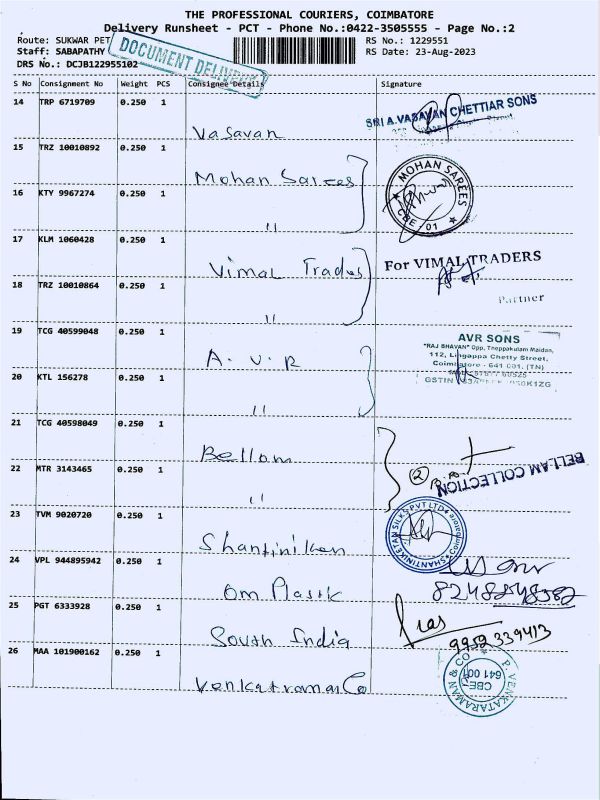 THE PROFESSIONAL COURIERS, COIMBATORE
Delivery Runsheet - PCT - Phone No.:0422-3505555 - Page No.:2
Route: SUKWAR PET
RS No.: 1229551
Staff: SABAPATHY
RS Date: 23-Aug-2023
DRS No.: DCJB122955102
DOCUMENT DELIVERY
S No Consignment No Weight PCS Consignee Details Signature
14 TRP 6719709 0.250 1
Vasavan
SRI A.VASAVAN CHETTIAR SONS
15 TRZ 10010892 0.250 1
Mohan Sarees
MOHAN SAREES
CBE 01
16 KTY 9967274 0.250 1
"
17 KLM 1060428 0.250 1
Vimal Trades
For VIMAL TRADERS
Partner
18 TRZ 10010864 0.250 1
"
19 TCG 40599048 0.250 1
A. V. R
AVR SONS
"RAJ BHAVAN" Opp. Theppakulam Maidan,
112, Lingappa Chetty Street,
Coimbatore - 641 001. (TN)
GSTIN
20 KTL 156278 0.250 1
"
21 TCG 40598049 0.250 1
Bellam
2
BELLAM COLLECTION
22 MTR 3143465 0.250 1
"
23 TVM 9020720 0.250 1
Shantiniken
SHANTINIKETAN SILKS PVT LTD
Coimbatore
24 VPL 944895942 0.250 1
Om Plastic
8248548582
25 PGT 6333928 0.250 1
South India
9952339413
26 MAA 101900162 0.250 1
Venkatraman Co
P. VENKATARAMAN & CO
CBE
641 001